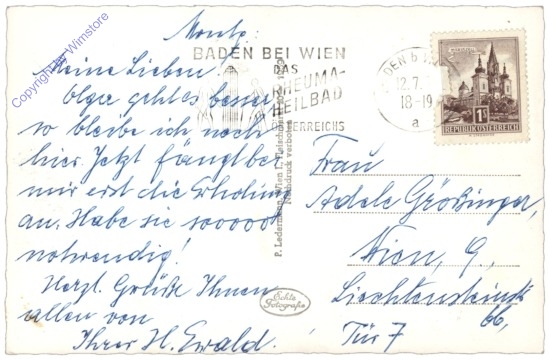 Montg:
Meine Lieben!
Olga geht es besser
so bleibe ich noch
hier. Jetzt fängt bei
mir erst die Erholung
an. Habe sie sooooot
notwendig!
Herzl. Grüße Ihnen
allen von
Ihrer H. Ewald.
BADEN BEI WIEN
DAS
RHEUMA-
HEILBAD
ÖSTERREICHS
DEN b
12.7.
18-19
a
1S
REPUBLIK ÖSTERREICH
P. Ledermann, Wien I.
Nachdruck verboten
Echte
Fotografie
Frau
Adele Größinger,
Wien, 9,
Liechtensteinstr
66,
Tür 7
Copyright by Wimstore